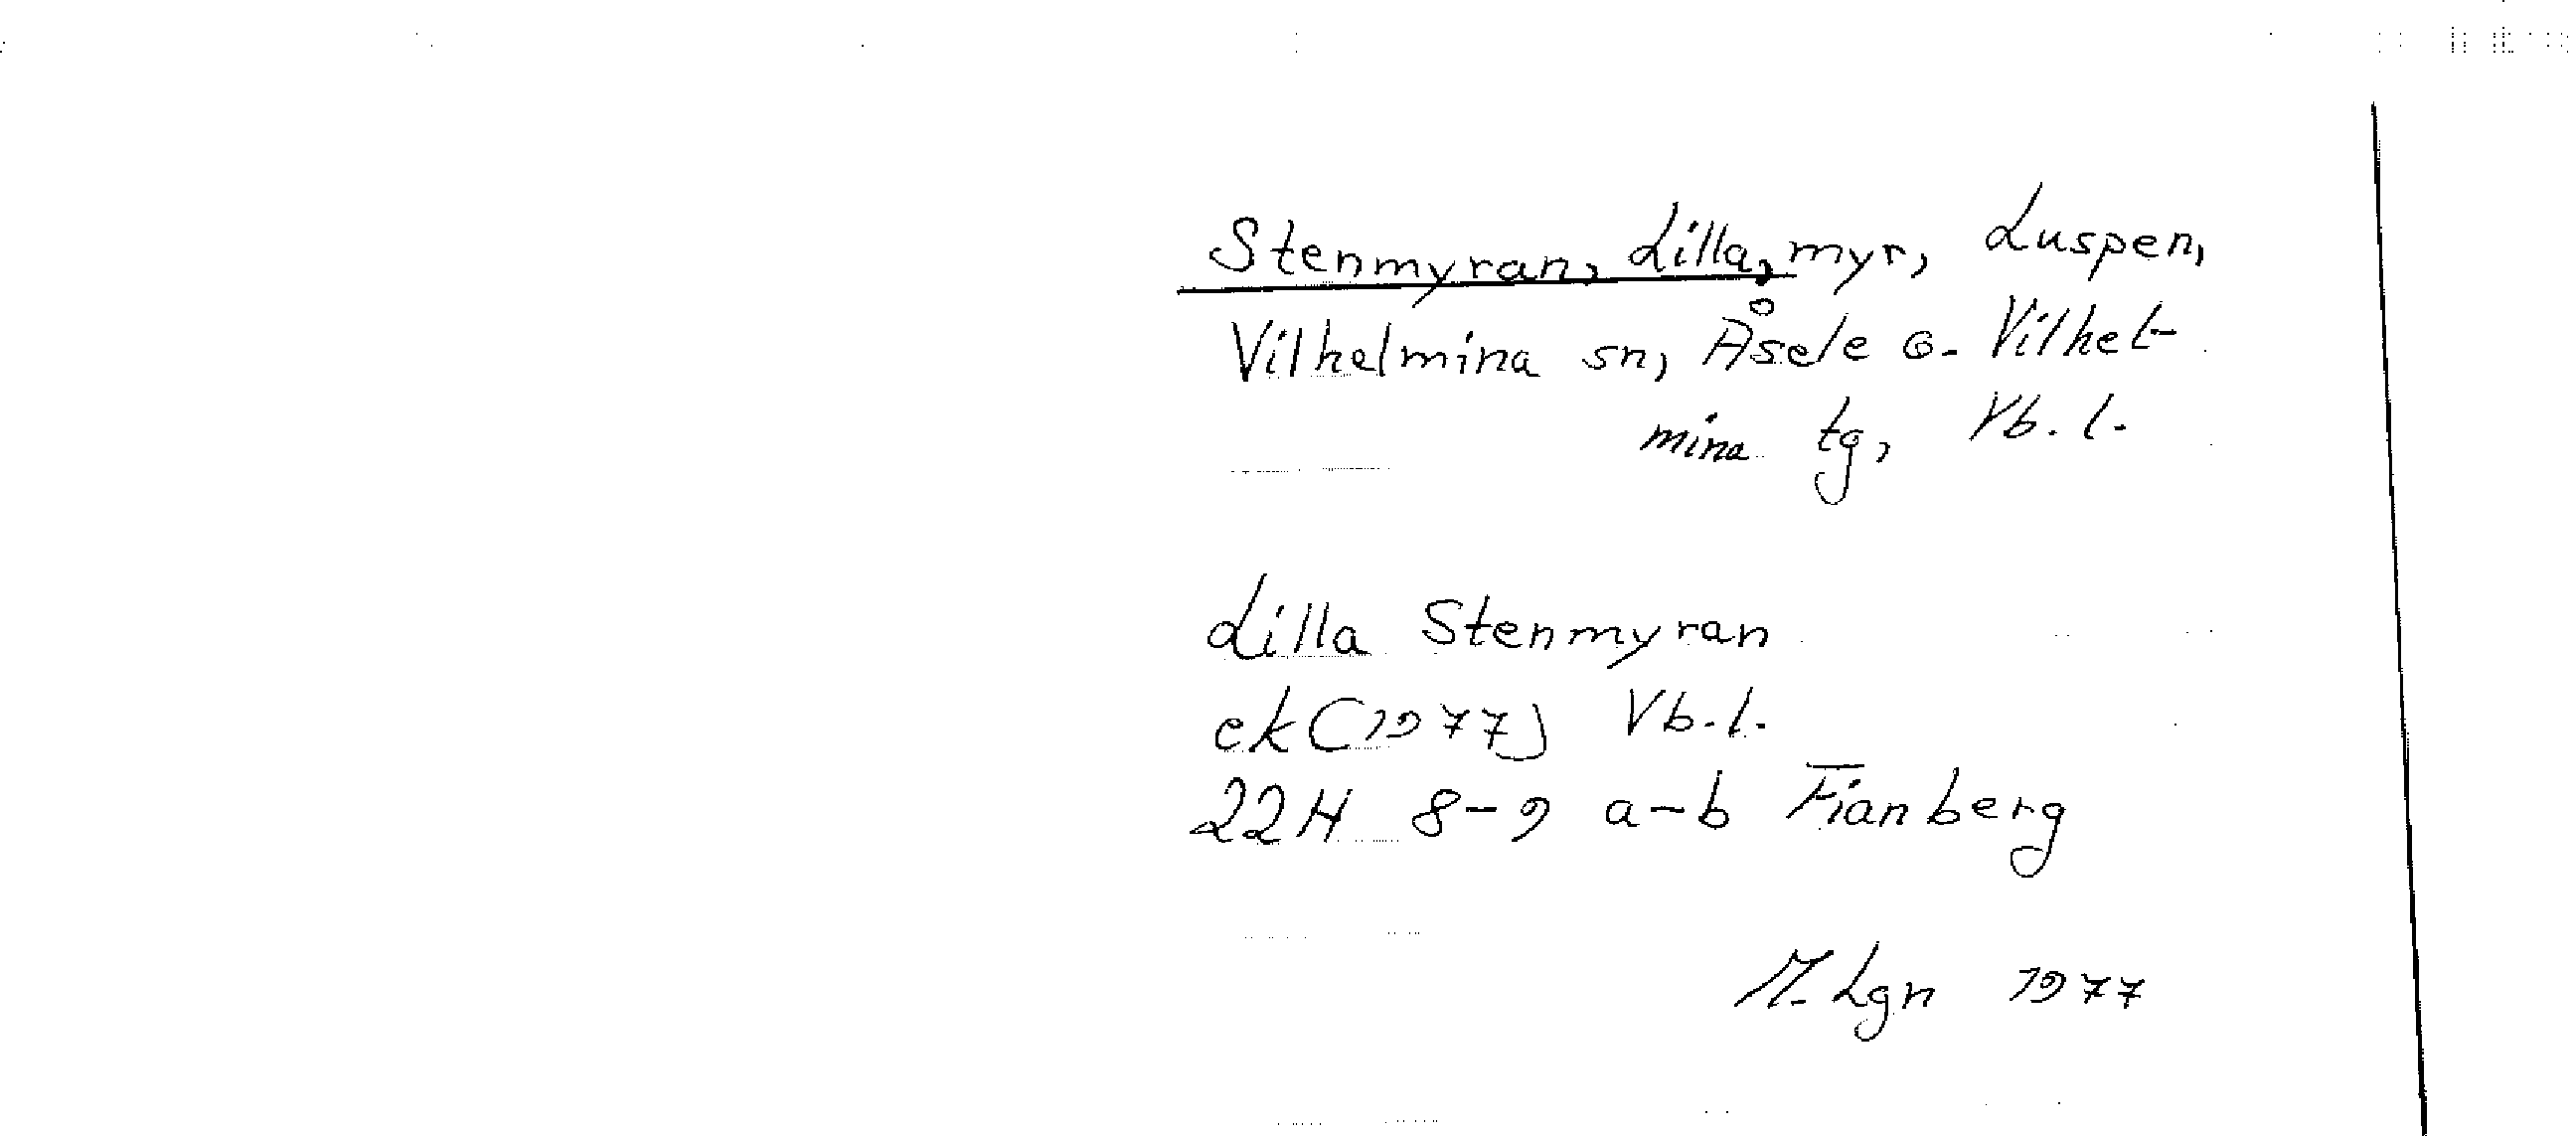 Stenmyran, Lilla, myr, Luspen,
Vilhelmina sn, Åsele o. Vilhel-
mina tg, Vb. l.
Lilla Stenmyran
ek (1977) Vb. l.
22H 8-9 a-b Fianberg
M. Lgn 1977